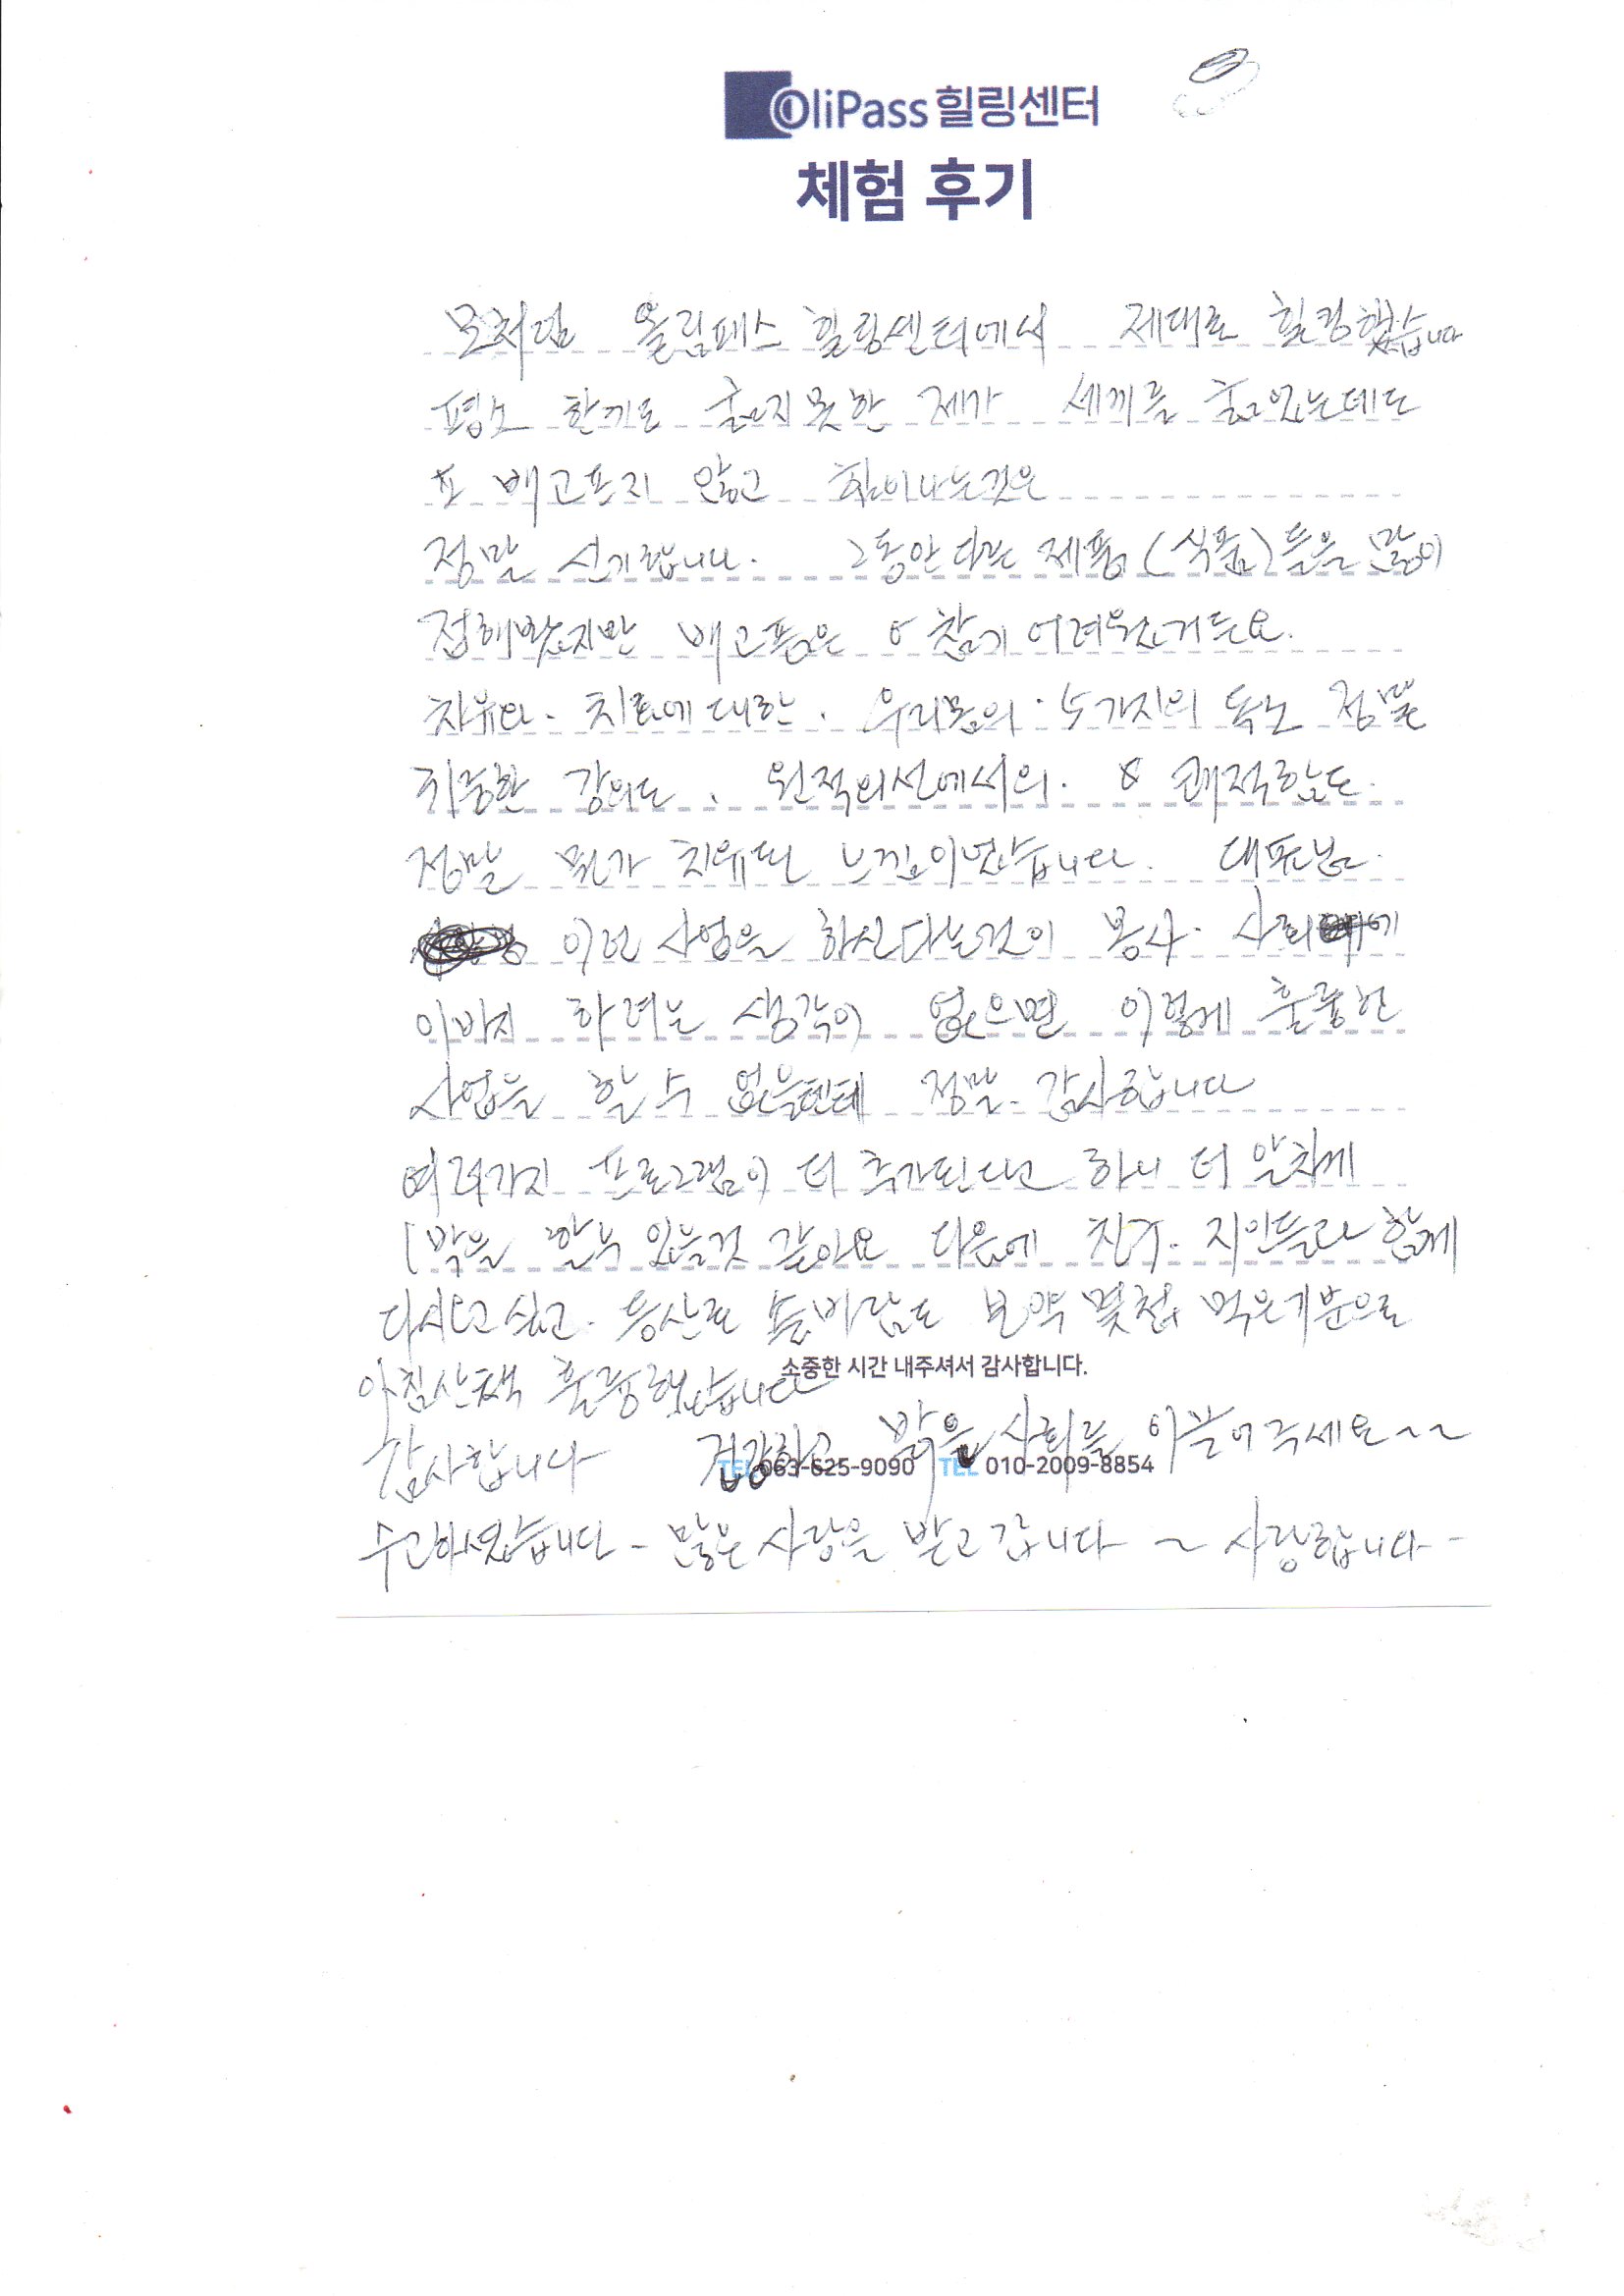 OliPass 힐링센터
체험 후기
모처럼 올림패스 힐링센터에서 제대로 힐링했습니다
평소 한끼도 굶지못한 제가 세끼를 굶고있는데도
배고프지 않고 힘이나는것은
정말 신기합니다. 그동안 다른 제품(식품)들을 많이
접해봤지만 배고픔은 참기 어려웠거든요.
치유와. 치료에 대한. 우리몸의 5가지의 독소 정말
귀중한 강의도. 원적외선에서의. 쾌적함도.
정말 뭔가 치유된 느낌이었습니다. 대표님.
이런 사업을 하신다는것이 봉사. 사회에
이바지 하려는 생각이 없으면 이렇게 훌륭한
사업을 할 수 없을텐데 정말. 감사합니다
여러가지 프로그램이 더 추가된다고 하니 더 알차게
1박을 할수 있을것 같아요 다음에 친구. 지인들과 함께
다시오고 싶고. 등산로 보약 몇첩 먹은기분으로
아침산책 훌륭했습니다
소중한 시간 내주셔서 감사합니다.
감사합니다 건강하고 밝은 사회를 이끌어주세요~~
TEL 063-625-9090 TEL 010-2009-8854
수고하셨습니다 - 많은 사랑을 받고 갑니다 ~ 사랑합니다 -